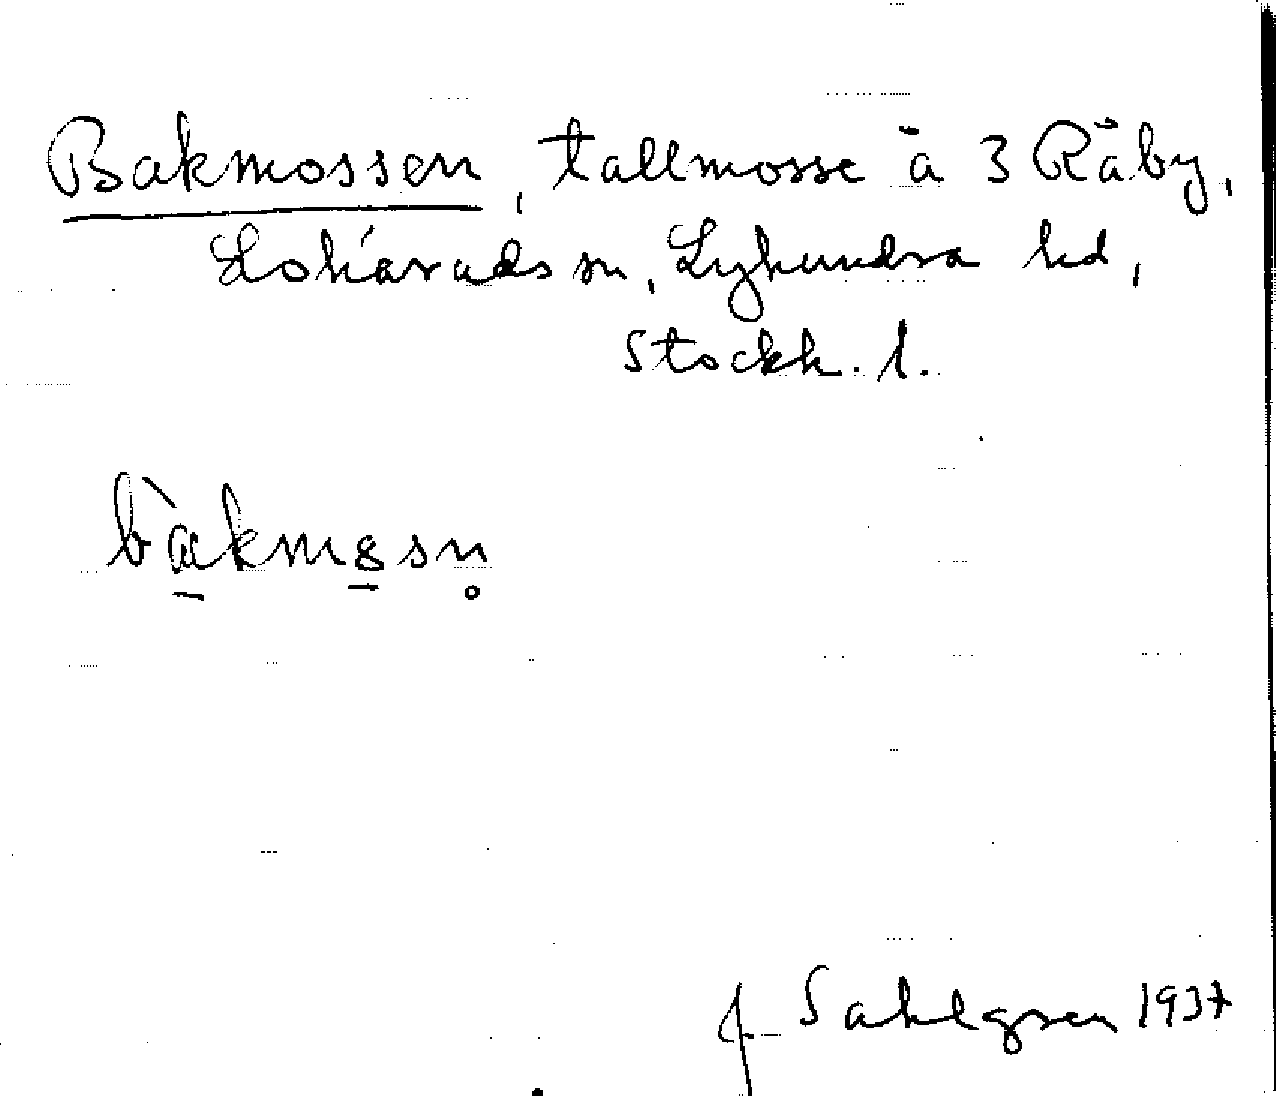 Bakmossen, tallmosse å 3 Råby,
Lohärads sn, Lyhundra hd,
Stockh. l.
bàkmosn̥
J. Sahlgren 1937